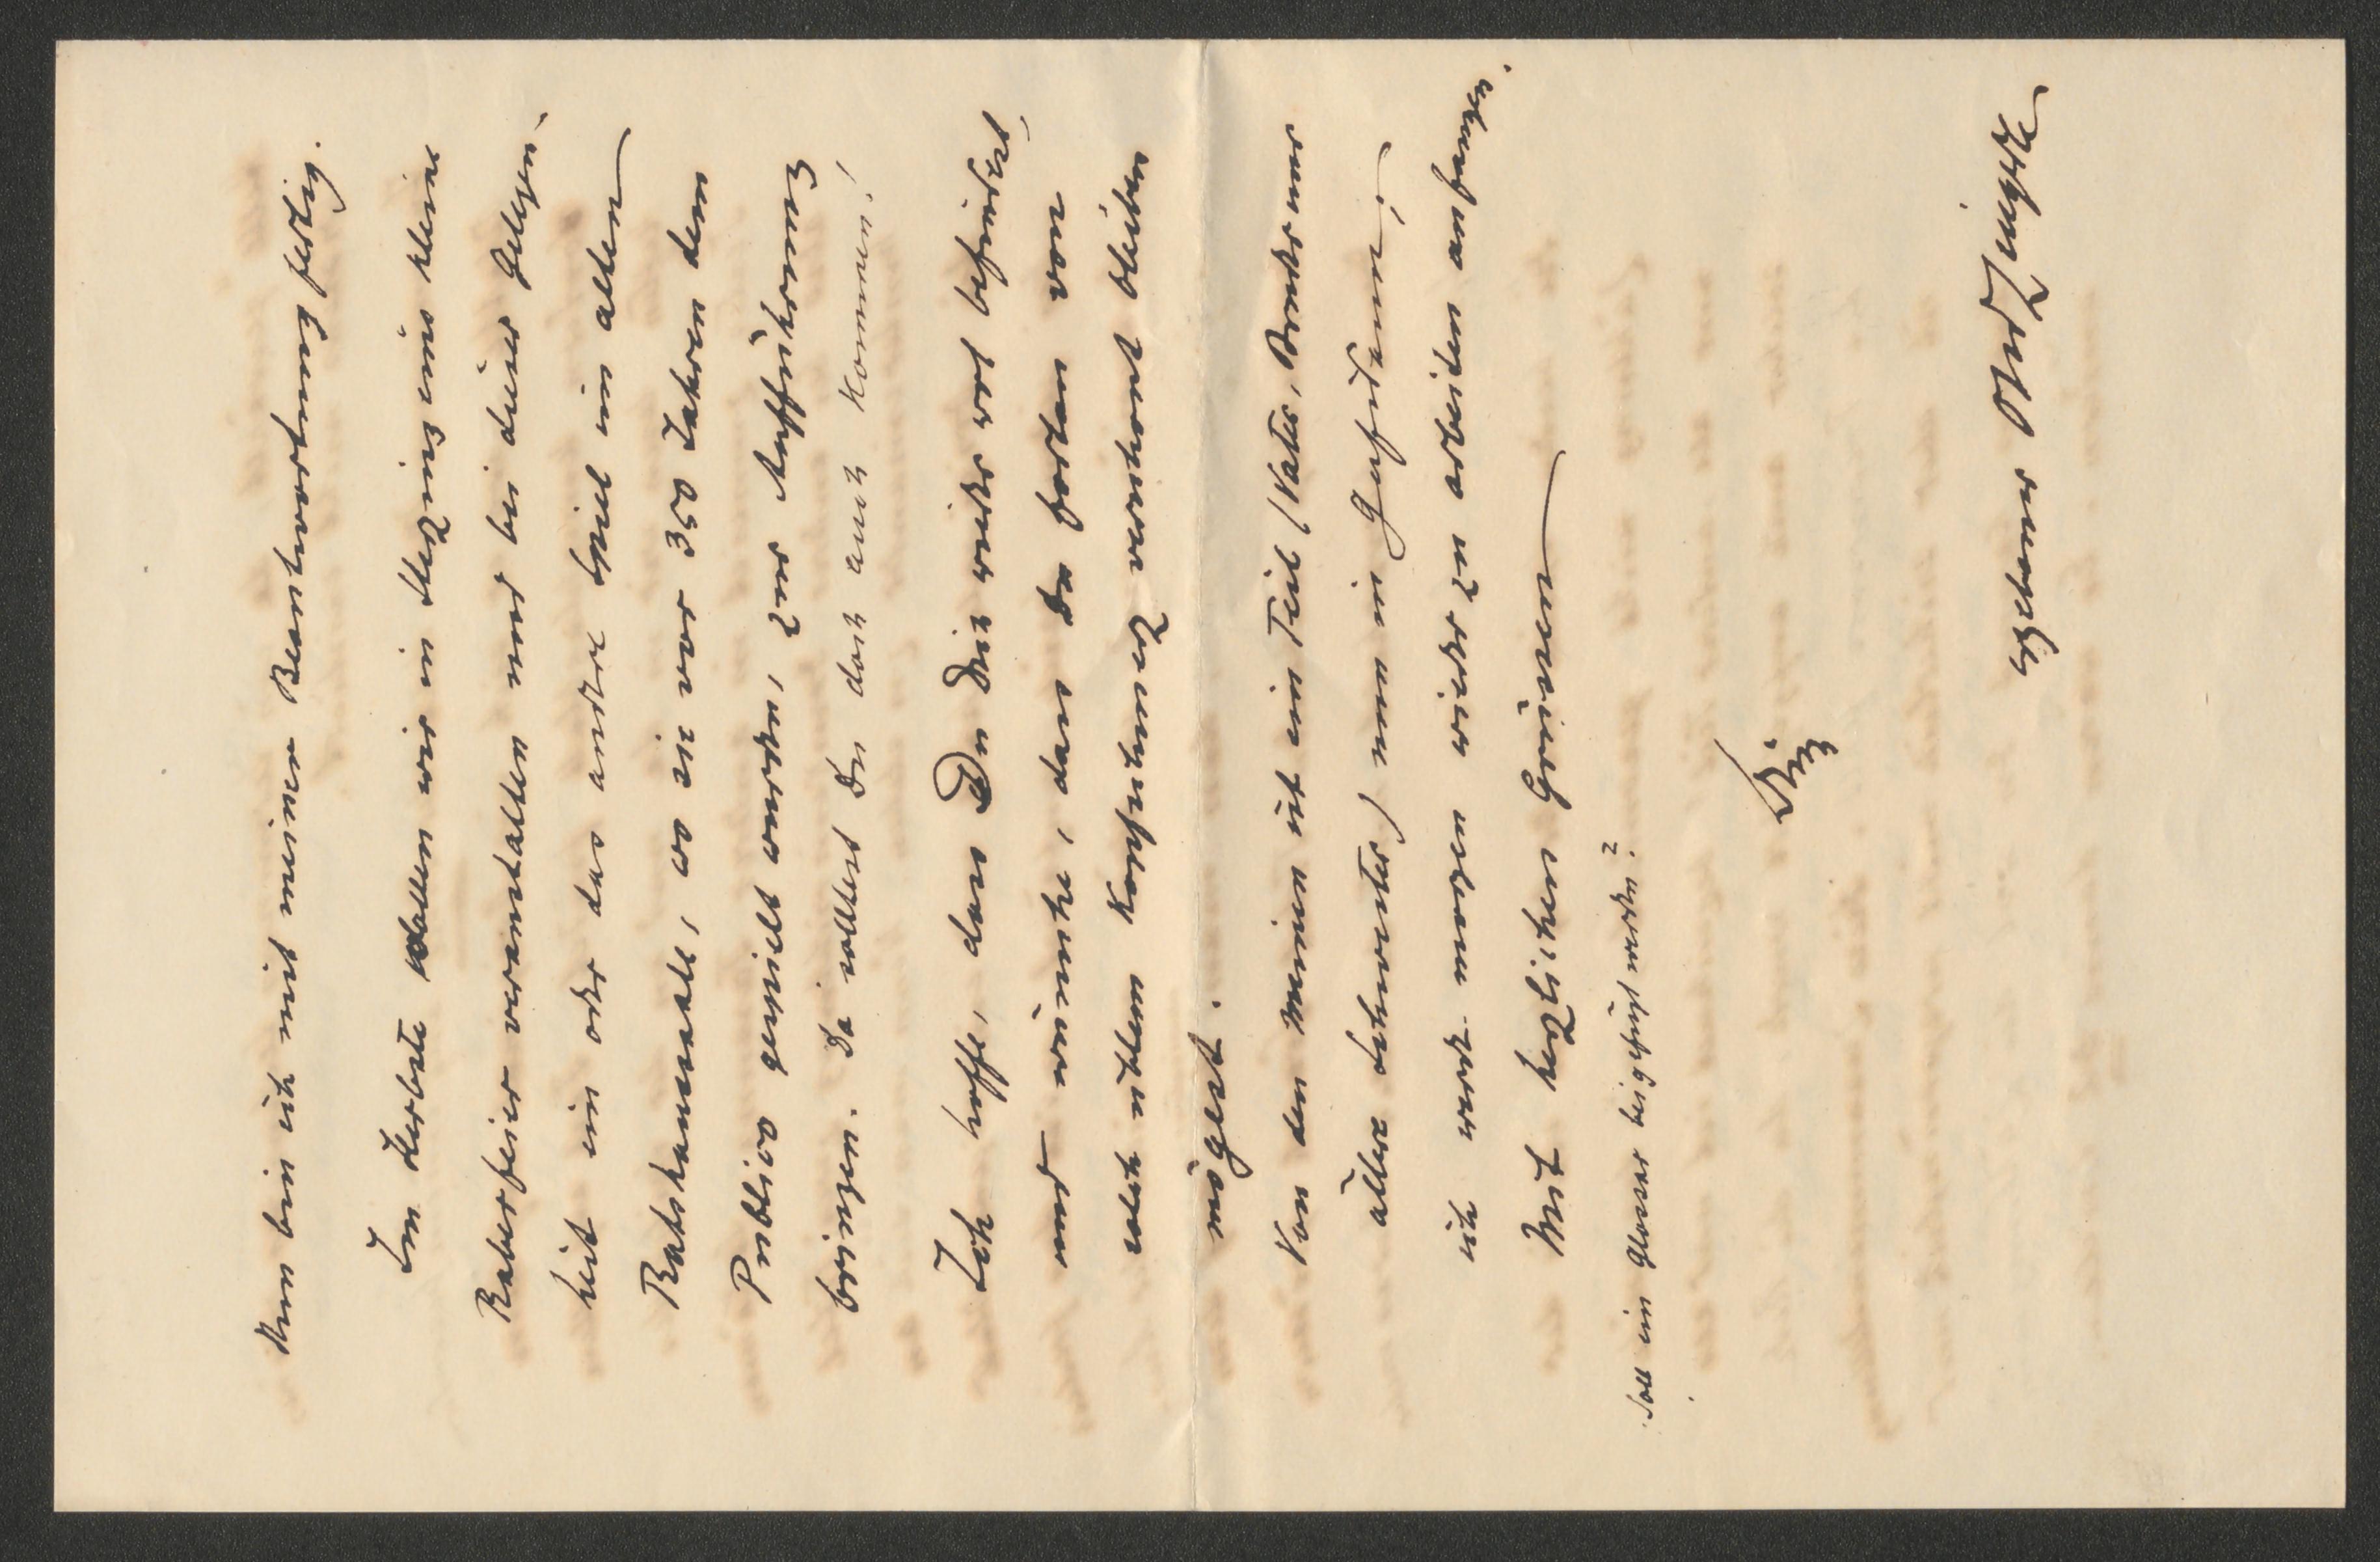 Nun bin ich mit meiner Beantwortung fertig.
Im Herbste wollen wir in Sterzing eine kleine
Raberfeier veranstalten und bei dieser Gelegen-
heit ein oder das andre Spiel im alten
Ratshaussaale, wo sie vor 350 Jahren dem
Publico gespielt wurden, zur Aufführung
bringen. Da solltest Du doch auch kommen!
Ich hoffe, dass Du Dich wider wol befindest,
und wünsche, dass Du fortan von
solch üblem Kopfschmerz verschont bleiben
mögest.
Von den Meinen ist ein Teil (Vater, Bruder und
ältere Schwester) nun in Gufidaun;
ich werde morgen wieder zu arbeiten anfangen.
Mit herzlichen Grüssen
Soll ein Glossar beigefügt werden?
Dein
ergebener OvZingerle